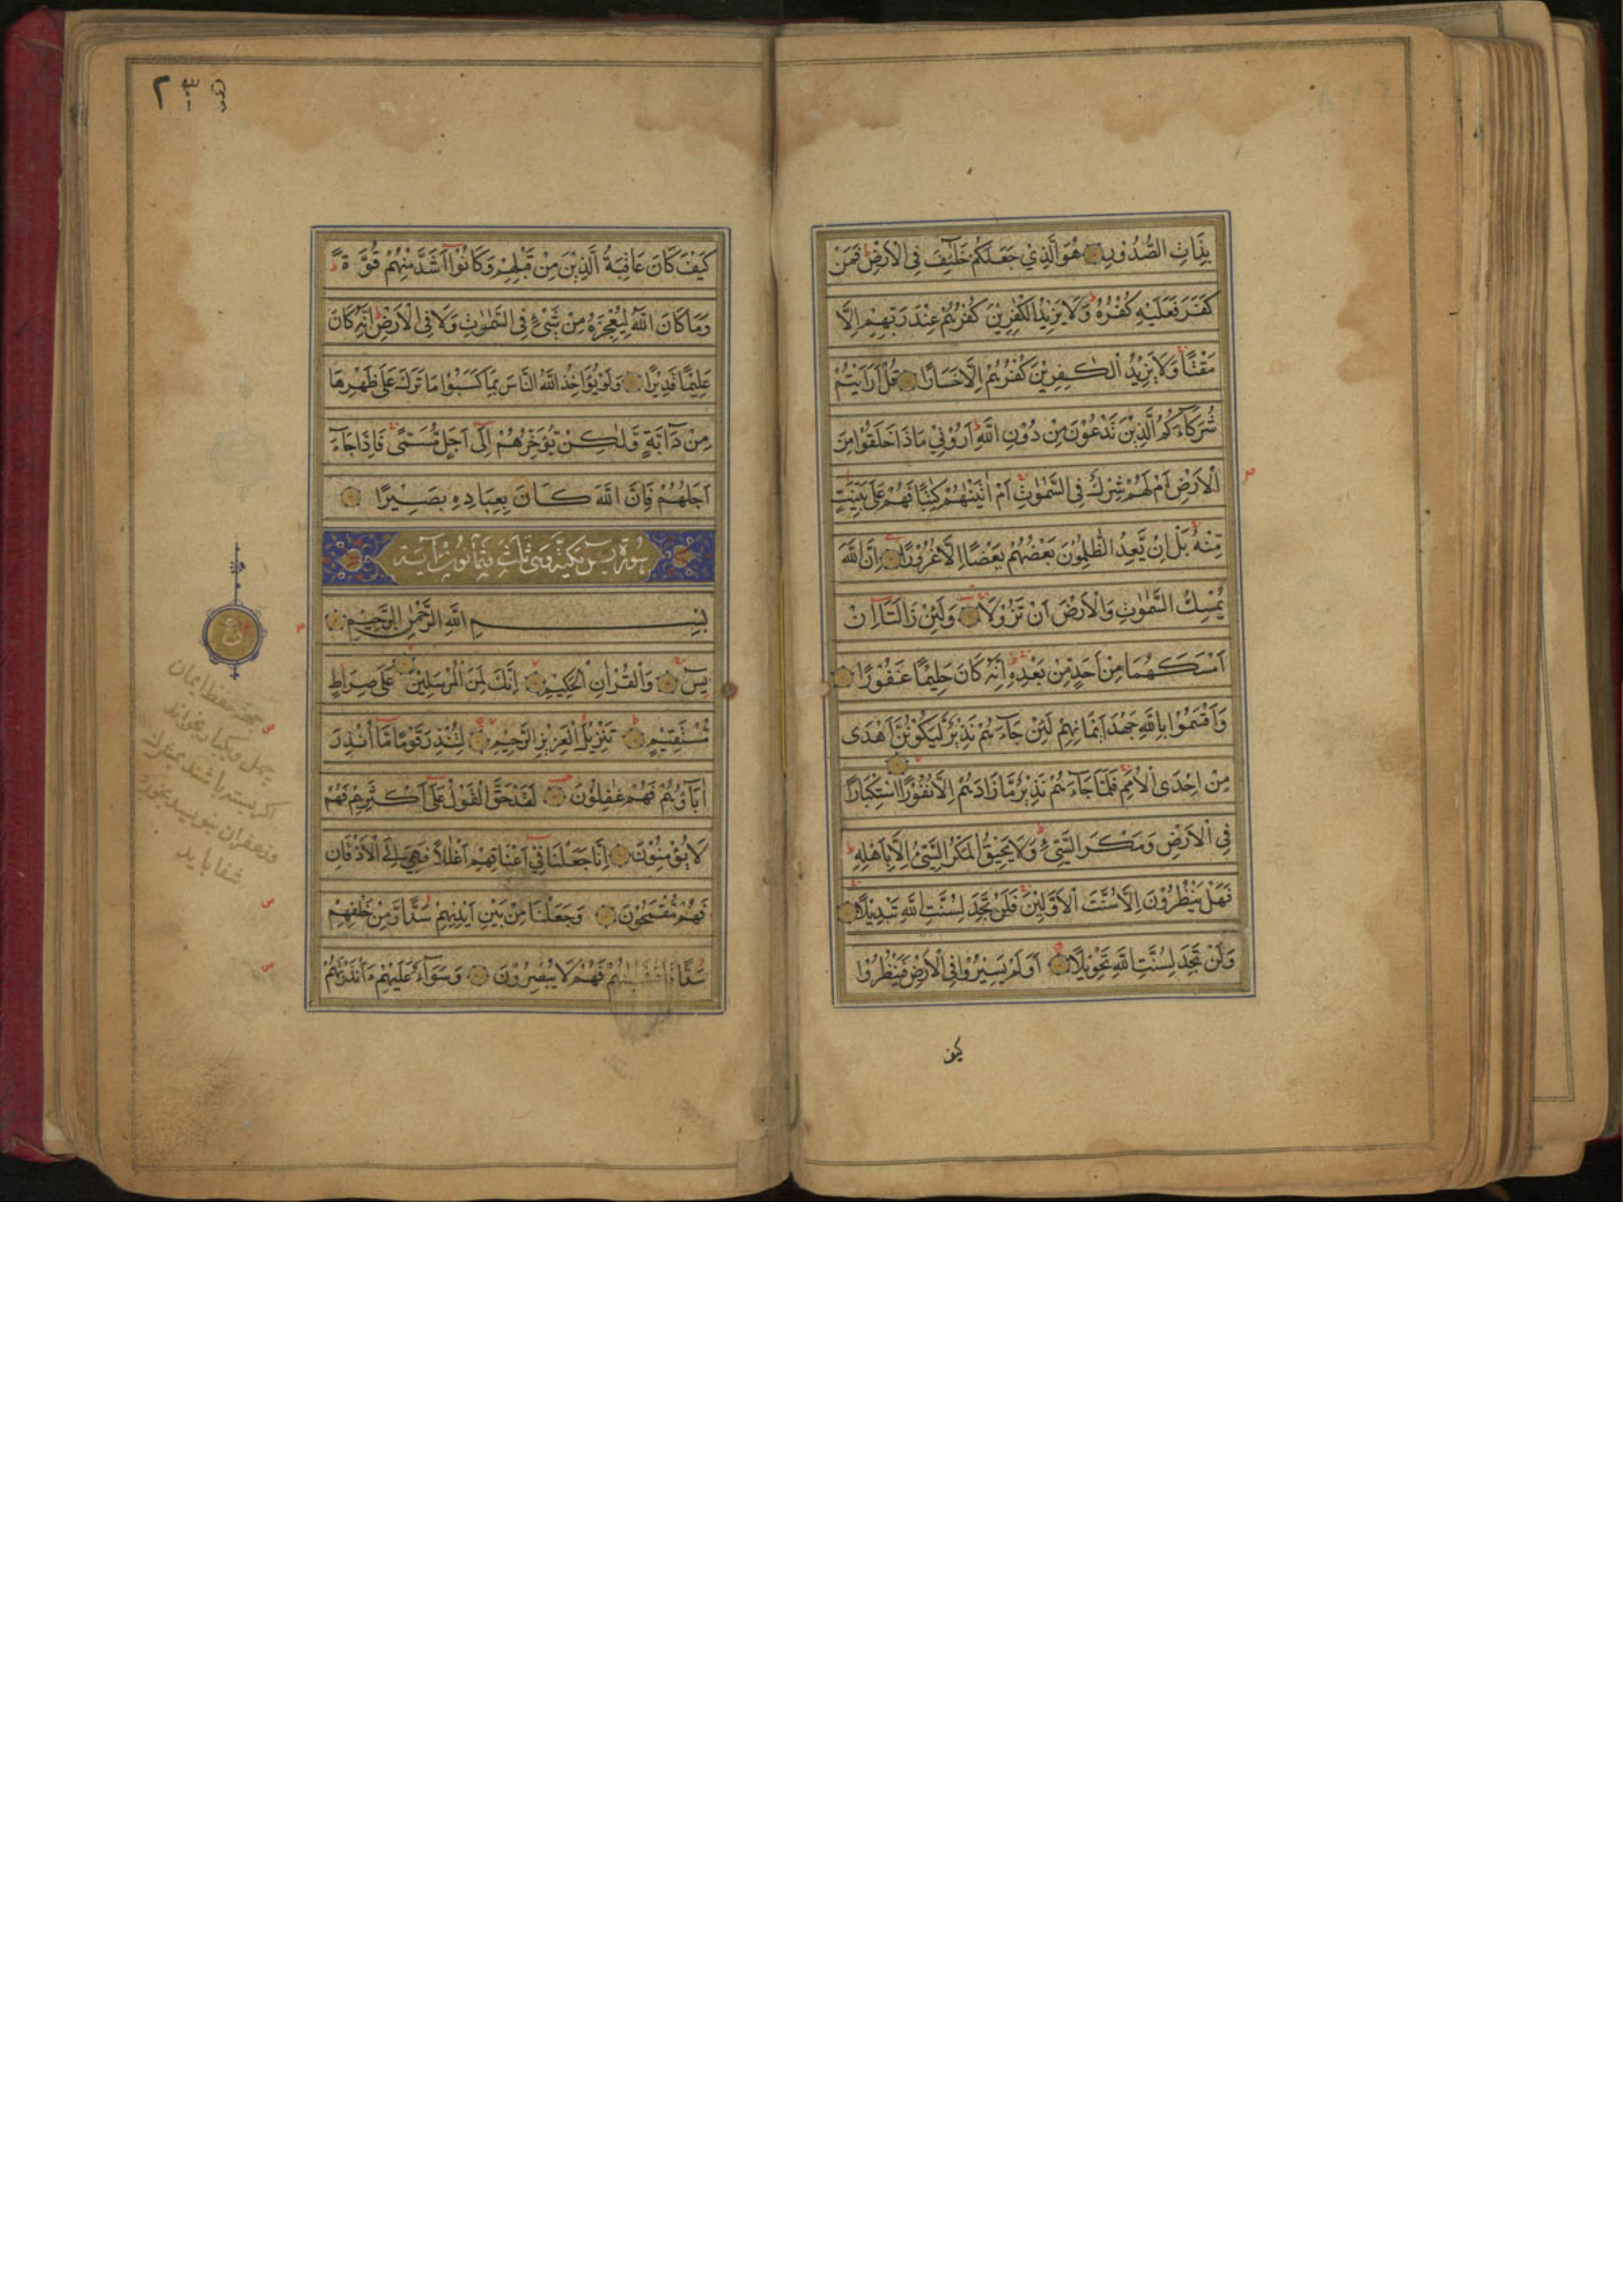 بِذَاتِ الصُّدُوْرِ هُوَ الَّذِيْ جَعَلَكُمْ خَلٰٓئِفَ فِى الْاَرْضِ فَمَنْ
كَفَرَ فَعَلَيْهِ كُفْرُهٗ وَلَا يَزِيْدُ الْكٰفِرِيْنَ كُفْرُهُمْ عِنْدَ رَبِّهِمْ اِلَّا
مَقْتًا وَلَا يَزِيْدُ الْكٰفِرِيْنَ كُفْرُهُمْ اِلَّا خَسَارًا قُلْ اَرَاَيْتُمْ
شُرَكَآءَكُمُ الَّذِيْنَ تَدْعُوْنَ مِنْ دُوْنِ اللّٰهِ اَرُوْنِيْ مَاذَا خَلَقُوْا مِنَ
الْاَرْضِ اَمْ لَهُمْ شِرْكٌ فِى السَّمٰوٰتِ اَمْ اٰتَيْنٰهُمْ كِتٰبًا فَهُمْ عَلٰى بَيِّنَتٍ
مِّنْهُ بَلْ اِنْ يَّعِدُ الظّٰلِمُوْنَ بَعْضُهُمْ بَعْضًا اِلَّا غُرُوْرًا اِنَّ اللّٰهَ
يُمْسِكُ السَّمٰوٰتِ وَالْاَرْضَ اَنْ تَزُوْلَا وَلَئِنْ زَالَتَا اِنْ
اَمْسَكَهُمَا مِنْ اَحَدٍ مِّنْ بَعْدِهٖ اِنَّهٗ كَانَ حَلِيْمًا غَفُوْرًا
وَاَقْسَمُوْا بِاللّٰهِ جَهْدَ اَيْمَانِهِمْ لَئِنْ جَآءَهُمْ نَذِيْرٌ لَّيَكُوْنُنَّ اَهْدٰى
مِنْ اِحْدَى الْاُمَمِ فَلَمَّا جَآءَهُمْ نَذِيْرٌ مَّا زَادَهُمْ اِلَّا نُفُوْرًا اسْتِكْبَارًا
فِى الْاَرْضِ وَمَكْرَ السَّيِّئِ وَلَا يَحِيْقُ الْمَكْرُ السَّيِّئُ اِلَّا بِاَهْلِهٖ
فَهَلْ يَنْظُرُوْنَ اِلَّا سُنَّتَ الْاَوَّلِيْنَ فَلَنْ تَجِدَ لِسُنَّتِ اللّٰهِ تَبْدِيْلًا
وَلَنْ تَجِدَ لِسُنَّتِ اللّٰهِ تَحْوِيْلًا اَوَلَمْ يَسِيْرُوْا فِى الْاَرْضِ فَيَنْظُرُوْا
كيف
كَيْفَ كَانَ عَاقِبَةُ الَّذِيْنَ مِنْ قَبْلِهِمْ وَكَانُوْا اَشَدَّ مِنْهُمْ قُوَّةً
وَمَا كَانَ اللّٰهُ لِيُعْجِزَهٗ مِنْ شَيْءٍ فِى السَّمٰوٰتِ وَلَا فِى الْاَرْضِ اِنَّهٗ كَانَ
عَلِيْمًا قَدِيْرًا وَلَوْ يُؤَاخِذُ اللّٰهُ النَّاسَ بِمَا كَسَبُوْا مَا تَرَكَ عَلٰى ظَهْرِهَا
مِنْ دَآبَّةٍ وَّلٰكِنْ يُّؤَخِّرُهُمْ اِلٰٓى اَجَلٍ مُّسَمًّى فَاِذَا جَآءَ
اَجَلُهُمْ فَاِنَّ اللّٰهَ كَانَ بِعِبَادِهٖ بَصِيْرًا
سورة يس مكية وهى ثلث وثمانون آية
بِسْمِ اللّٰهِ الرَّحْمٰنِ الرَّحِيْمِ
يٰسٓ وَالْقُرْاٰنِ الْحَكِيْمِ اِنَّكَ لَمِنَ الْمُرْسَلِيْنَ عَلٰى صِرَاطٍ
مُّسْتَقِيْمٍ تَنْزِيْلَ الْعَزِيْزِ الرَّحِيْمِ لِتُنْذِرَ قَوْمًا مَّا اُنْذِرَ
اٰبَآؤُهُمْ فَهُمْ غٰفِلُوْنَ لَقَدْ حَقَّ الْقَوْلُ عَلٰٓى اَكْثَرِهِمْ فَهُمْ
لَا يُؤْمِنُوْنَ اِنَّا جَعَلْنَا فِيْ اَعْنَاقِهِمْ اَغْلٰلًا فَهِيَ اِلَى الْاَذْقَانِ
فَهُمْ مُّقْمَحُوْنَ وَجَعَلْنَا مِنْ بَيْنِ اَيْدِيْهِمْ سَدًّا وَّمِنْ خَلْفِهِمْ
سَدًّا فَاَغْشَيْنٰهُمْ فَهُمْ لَا يُبْصِرُوْنَ وَسَوَآءٌ عَلَيْهِمْ ءَاَنْذَرْتَهُمْ
حفظ ايمان
چهل ويكبار بخواند
اكر بسته باشند
وزعفران بنويسد بخورد
شفا يابد